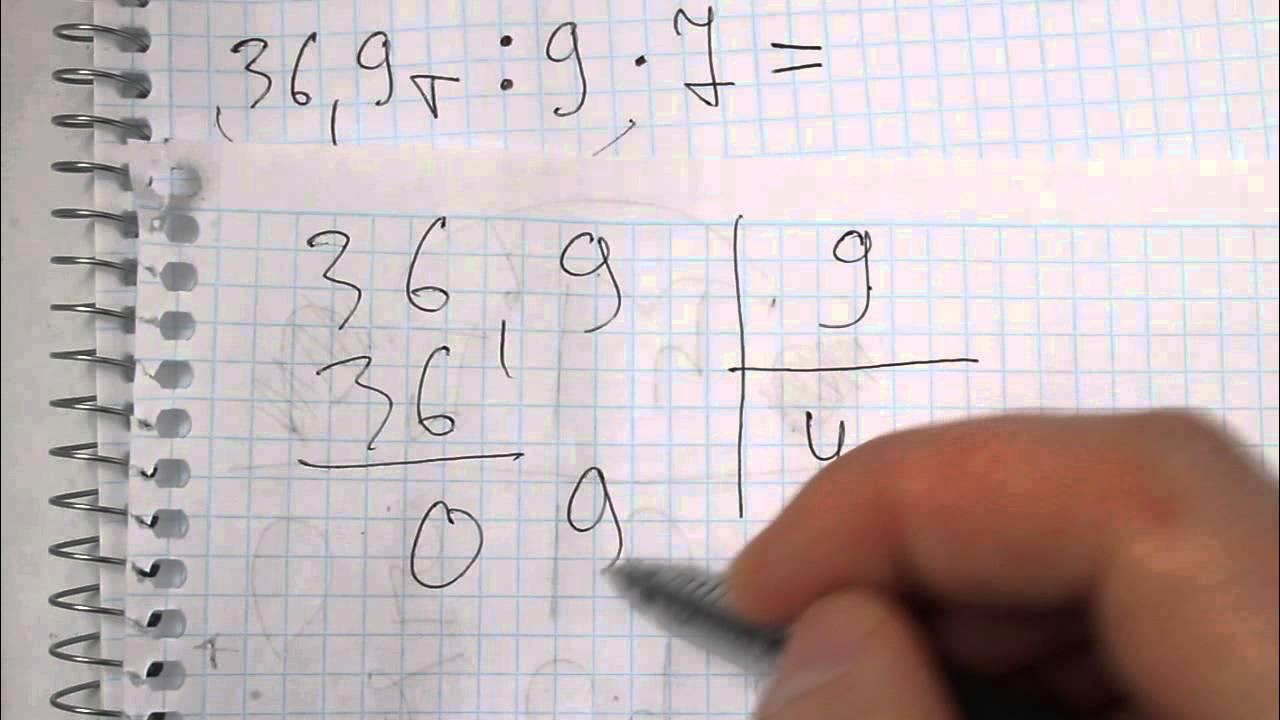 36,9т : 9 · 7 =
36,9 9
36 4
0 9